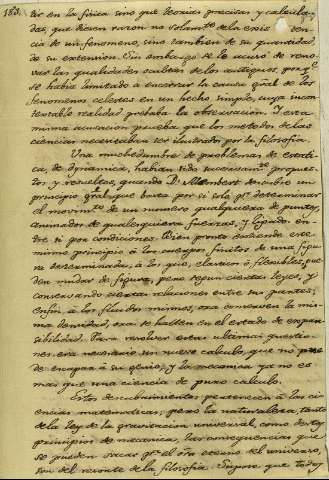 183.
dir en la física sino que teorias precisas y calcula-
das, que diesen razon no solamte. de la exis-
cia de un fenomeno, sino tambien de su quantidad,
de su extension. Sin embargo se le acusó de reno-
var las qualidades ocultas de los antiguos, porqe.
se habia limitado á encerrar la causa gral de los
fenomenos celestes en un hecho simple, cuya incon-
testable realidad probaba la observacion. Y esta
misma acusacion prueba que los metodos de las
ciencias necesitaban ser ilustrados por la filosofia.
Una muchedumbre de problemas de estati-
ca, de dynamica, habian sido sucesivamte. propues-
tos y resueltos, quando D'Alembert descubre un
principio gral que basta por si solo pa. determinar
el movimto. de un numero qualquiera de puntos,
animados de qualesquiera fuerzas, y ligados en-
tre si por condiciones. Bien pronto extiende este
mismo principio á los cuerpos finitos de una figu-
ra determinada; á los que, elasticos ó flexibles, pue-
den mudar de figura, pero segun ciertas leyes, y
conservando ciertas relaciones entre sus partes;
en fin, á los fluidos mismos, ora conserven la mis-
ma densidad, ora se hallen en el estado de expan-
sibilidad. Para resolver estas ultimas questio-
nes era necesario un nuevo calculo, que no pue-
de escapar á su genio, y la mecanica ya no es
mas que una ciencia de puro calculo.
Estos descubrimientos pertenecen á las ci-
encias matematicas; pero la naturaleza, tanto
de la ley de la gravitacion universal, como de estos
principios de mecanica, las consequencias que
se pueden sacar pa. el orden eterno del universo,
son del resorte de la filosofia. Supose que todos